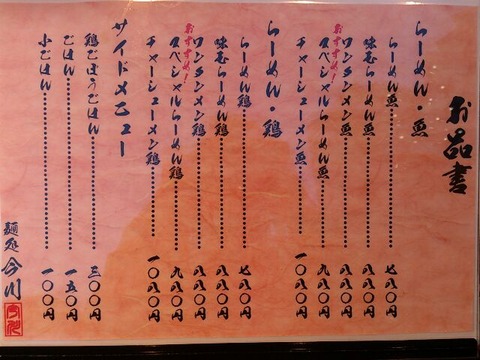 お品書
らーめん・魚
らーめん魚 七八〇円
味玉らーめん魚 八八〇円
ワンタンメン魚 八八〇円
おすすめ!
スペシャルらーめん魚 九八〇円
チャーシューメン魚 一〇八〇円
らーめん・鶏
らーめん鶏 七八〇円
味玉らーめん鶏 八八〇円
ワンタンメン鶏 八八〇円
おすすめ!
スペシャルらーめん鶏 九八〇円
チャーシューメン鶏 一〇八〇円
サイドメニュー
鶏ごぼうごはん 三〇〇円
ごはん 一五〇円
小ごはん 一〇〇円
麺処 今川